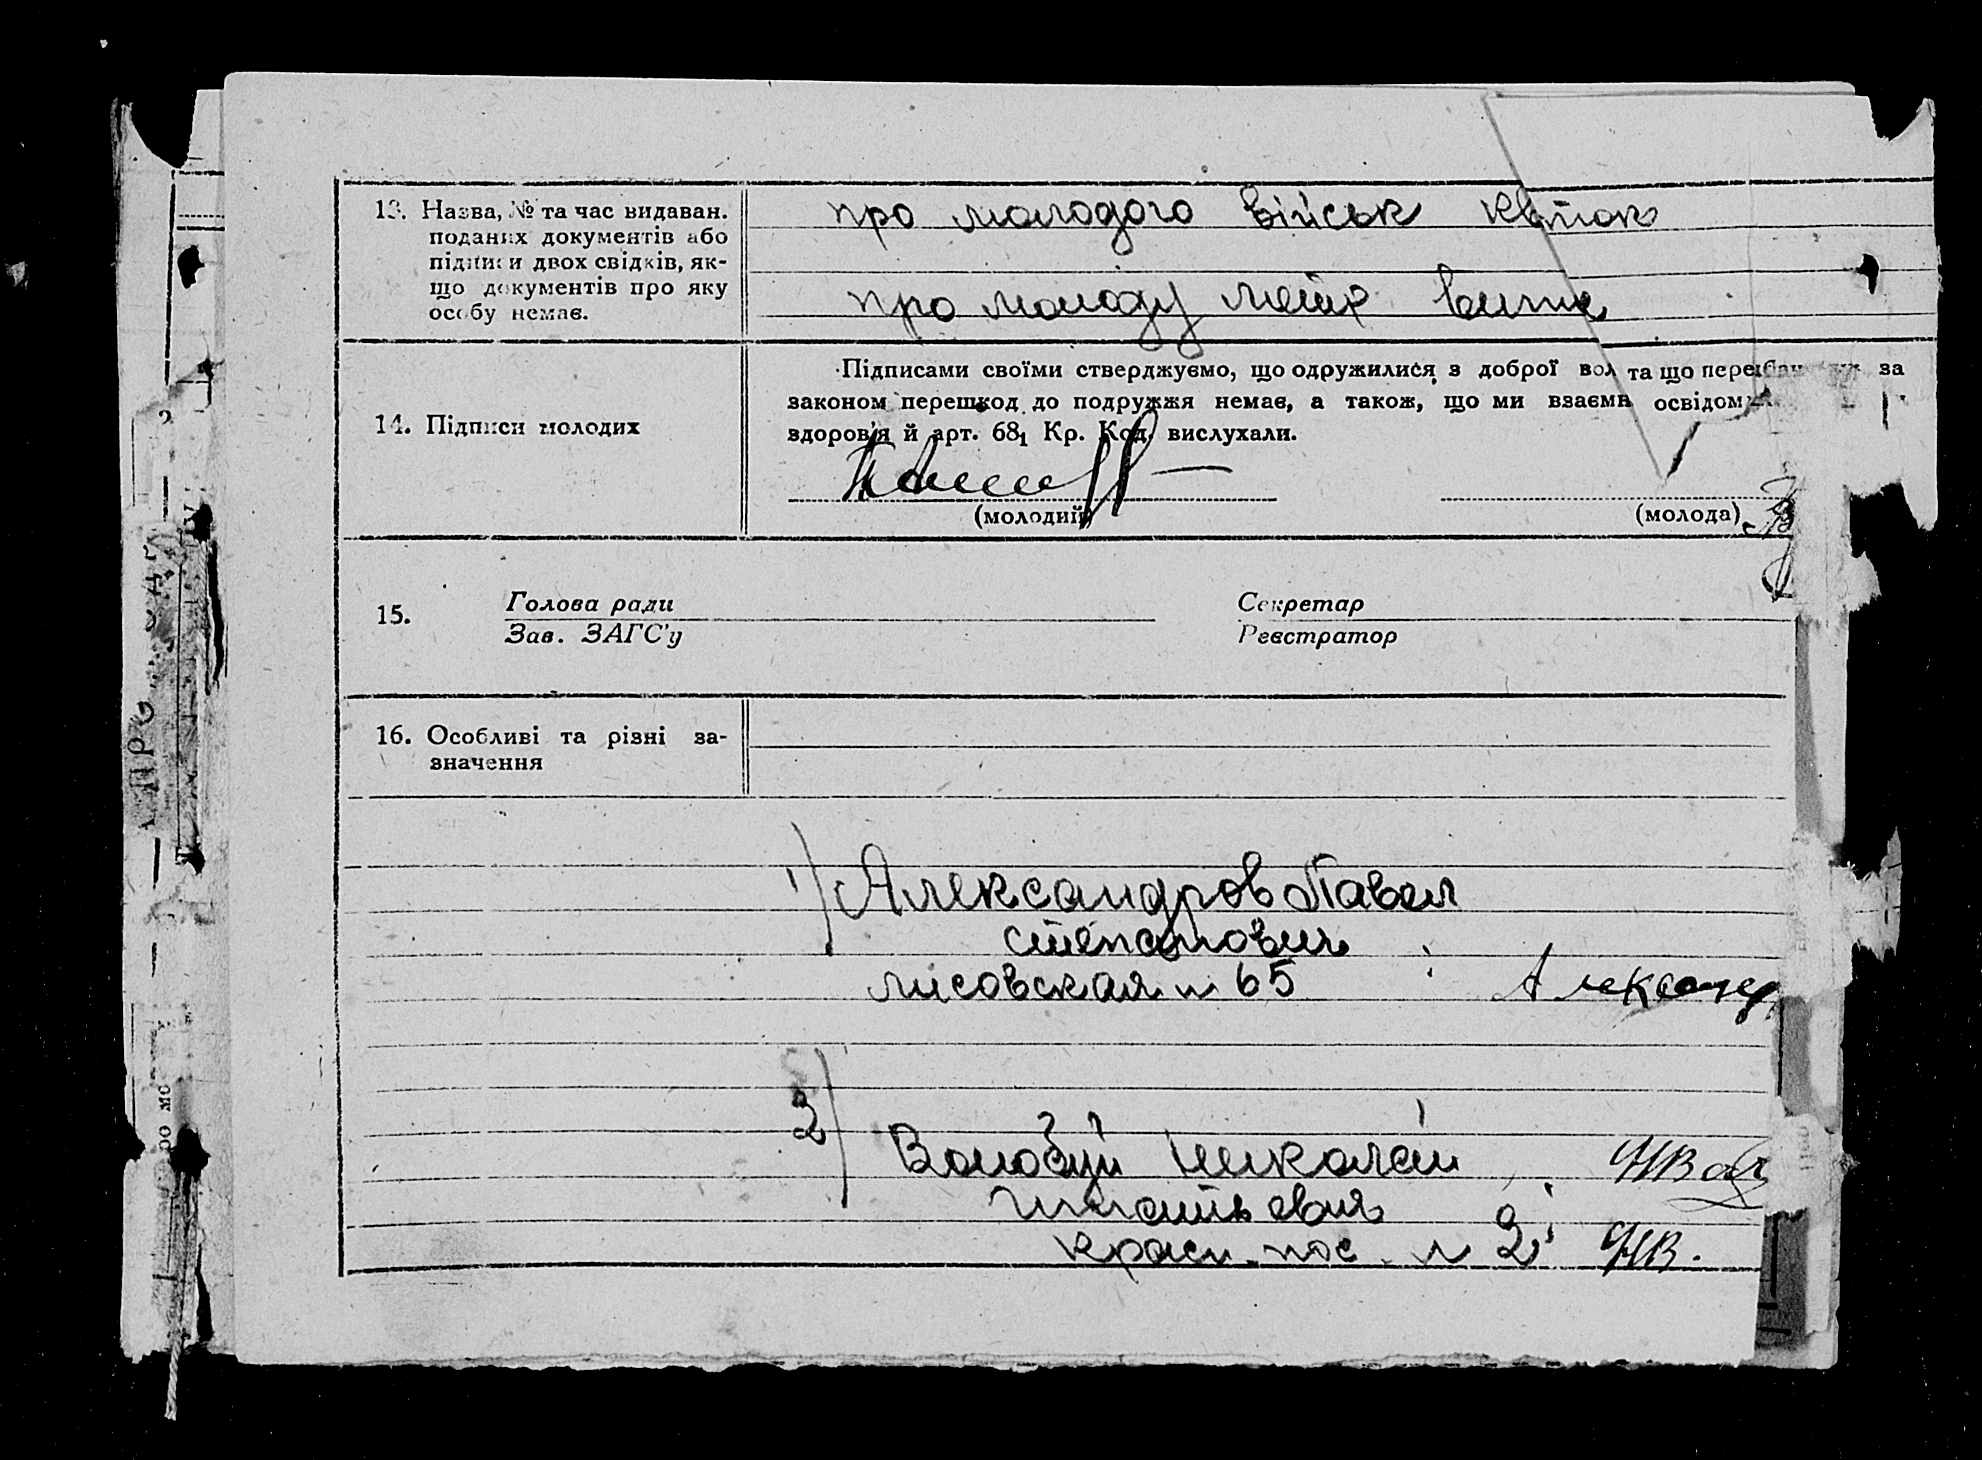 13. Назва, № та час видаван. поданих документів або підписи двох свідків, якщо документів про яку особу немає.
про молодого військ квиток
про молоду метр випис
14. Підписи молодих
Підписами своїми стверджуємо, що одружилися з доброї вол та що за
законом перешкод до подружжя немає, а також, що ми взаємн освідом
здоров'я й арт. 68₁ Кр. Код. вислухали.
(молодий)
(молода)
15.
Голова ради
Зав. ЗАГС'у
Секретар
Реєстратор
16. Особливі та різні зазначення
1) Александров Павел
Степанович
Лисовская № 65
Александр
2) Волобуй Николай
Игнатьевич
Красн. пос. № 2
НВ.